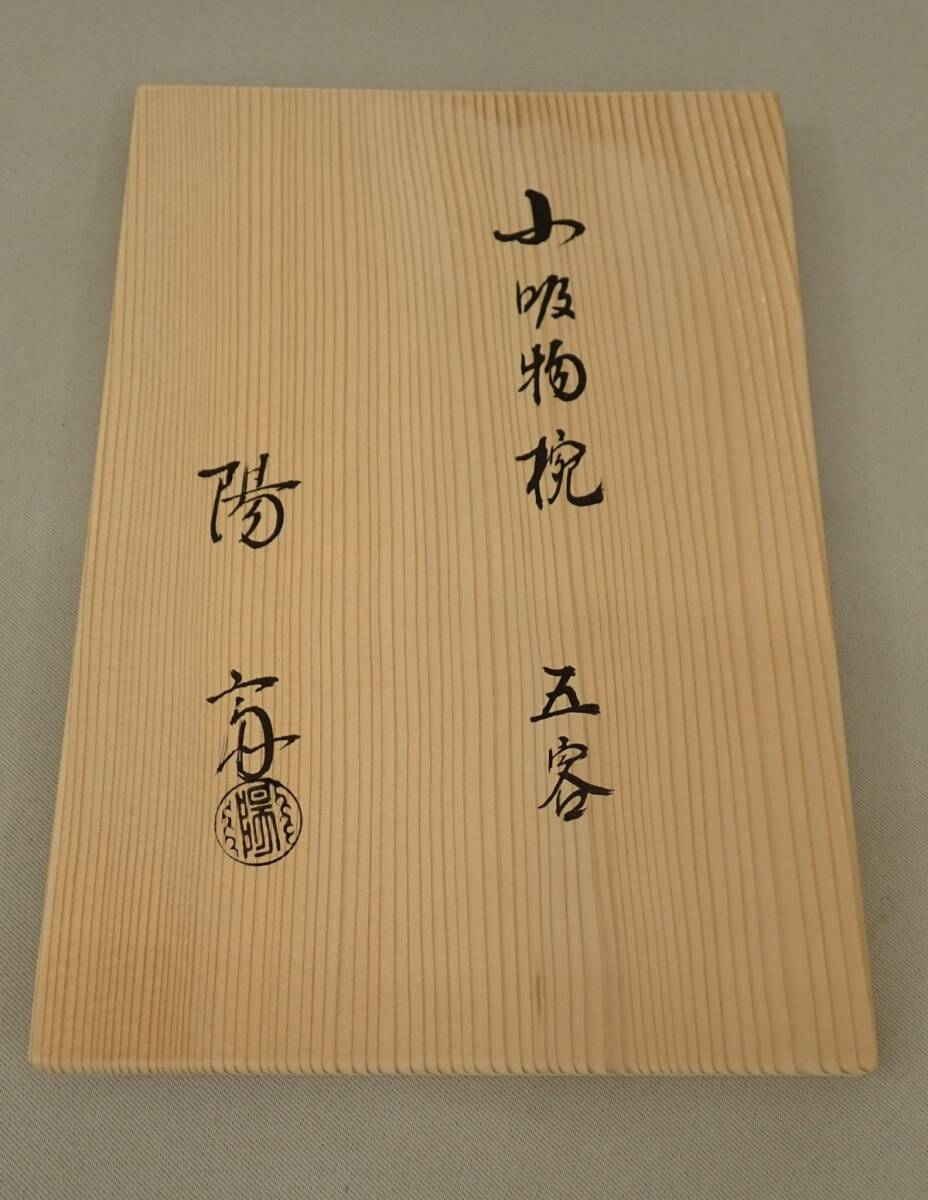 小吸物椀 五客
陽
陽